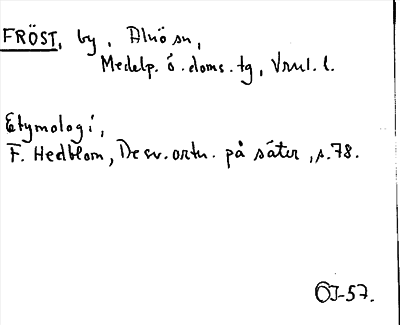 FRÖST, by, Alnö sn,
Medelp. ö. doms. tg, Vnrl. l.
Etymologi,
F. Hedblom, De sv. ortn. på säter, s. 78.
OJ-57.